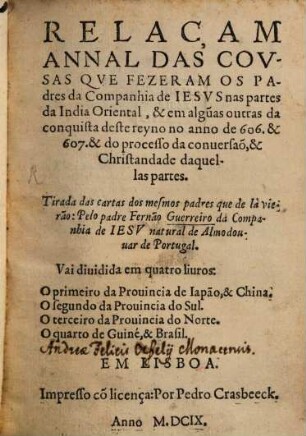 RELAÇAM
ANNAL DAS COV-
SAS QVE FEZERAM OS PA-
dres da Companhia de IESVS nas partes
da India Oriental, & em algũas outras da
conquista deste reyno no anno de 606. &
607. & do processo da conuersaõ, &
Christandade daquel-
las partes.
Tirada das cartas dos mesmos padres que de là vie-
rão: Pelo padre Fernão Guerreiro da Compa-
nhia de IESV natural de Almodou-
uar de Portugal.
Vai diuidida em quatro liuros:
O primeiro da Prouincia de Iapão, & China.
O segundo da Prouincia do Sul.
O terceiro da Prouincia do Norte.
O quarto de Guiné, & Brasil.
Andreæ Felicis Oefelij Monacensis.
EM LISBOA.
Impresso cõ licença: Por Pedro Crasbeeck.
Anno M. DCIX.